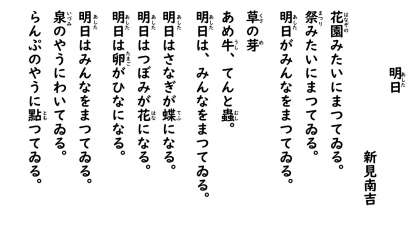 明日
新見南吉
花園みたいにまつてゐる。
祭みたいにまつてゐる。
明日がみんなをまつてゐる。
草の芽
あめ牛、てんと蟲。
明日は、みんなをまつてゐる。
明日はさなぎが蝶になる。
明日はつぼみが花になる。
明日は卵がひなになる。
明日はみんなをまつてゐる。
泉のやうにわいてゐる。
らんぷのやうに點つてゐる。